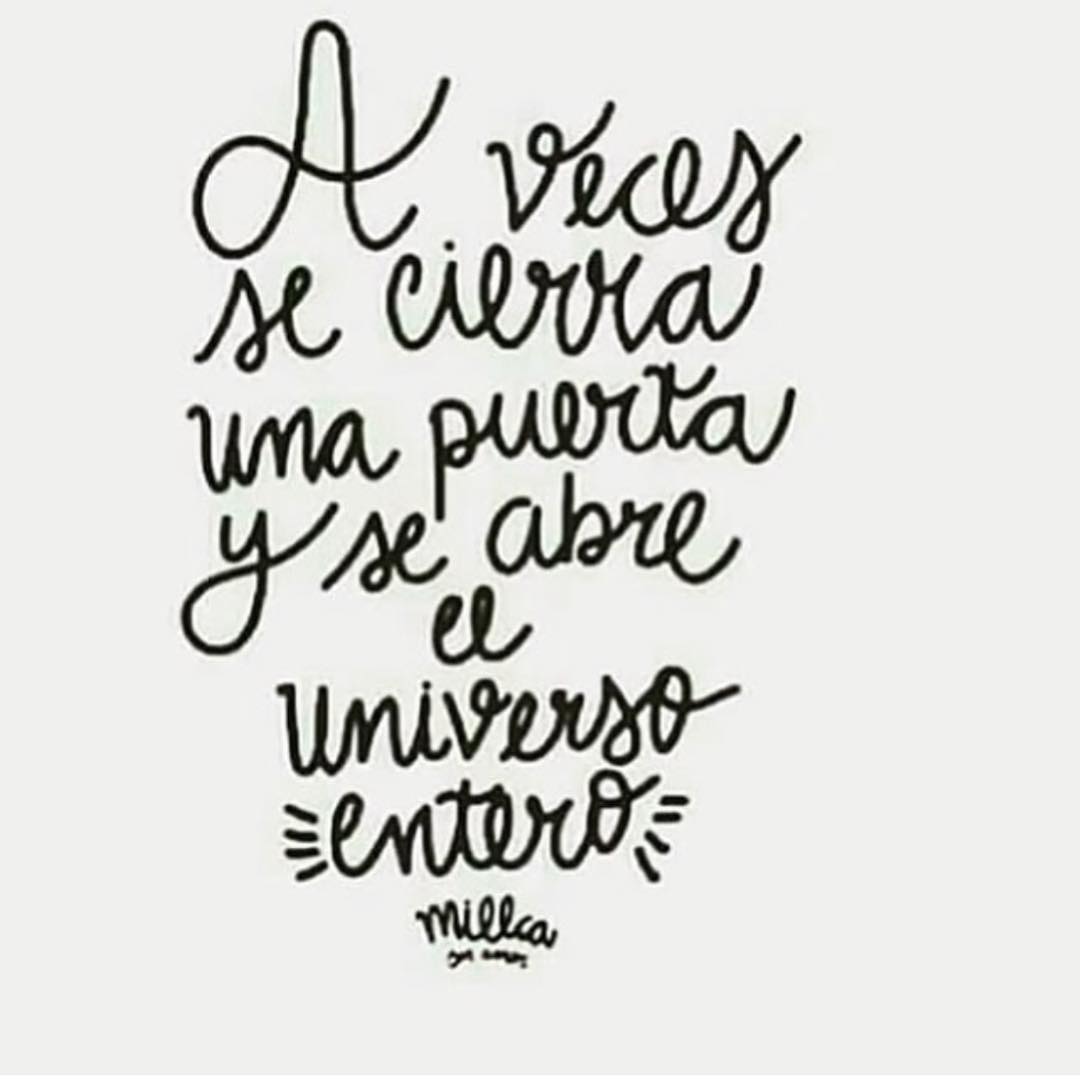 A veces
se cierra
una puerta
y se abre
el
universo
entero
millca